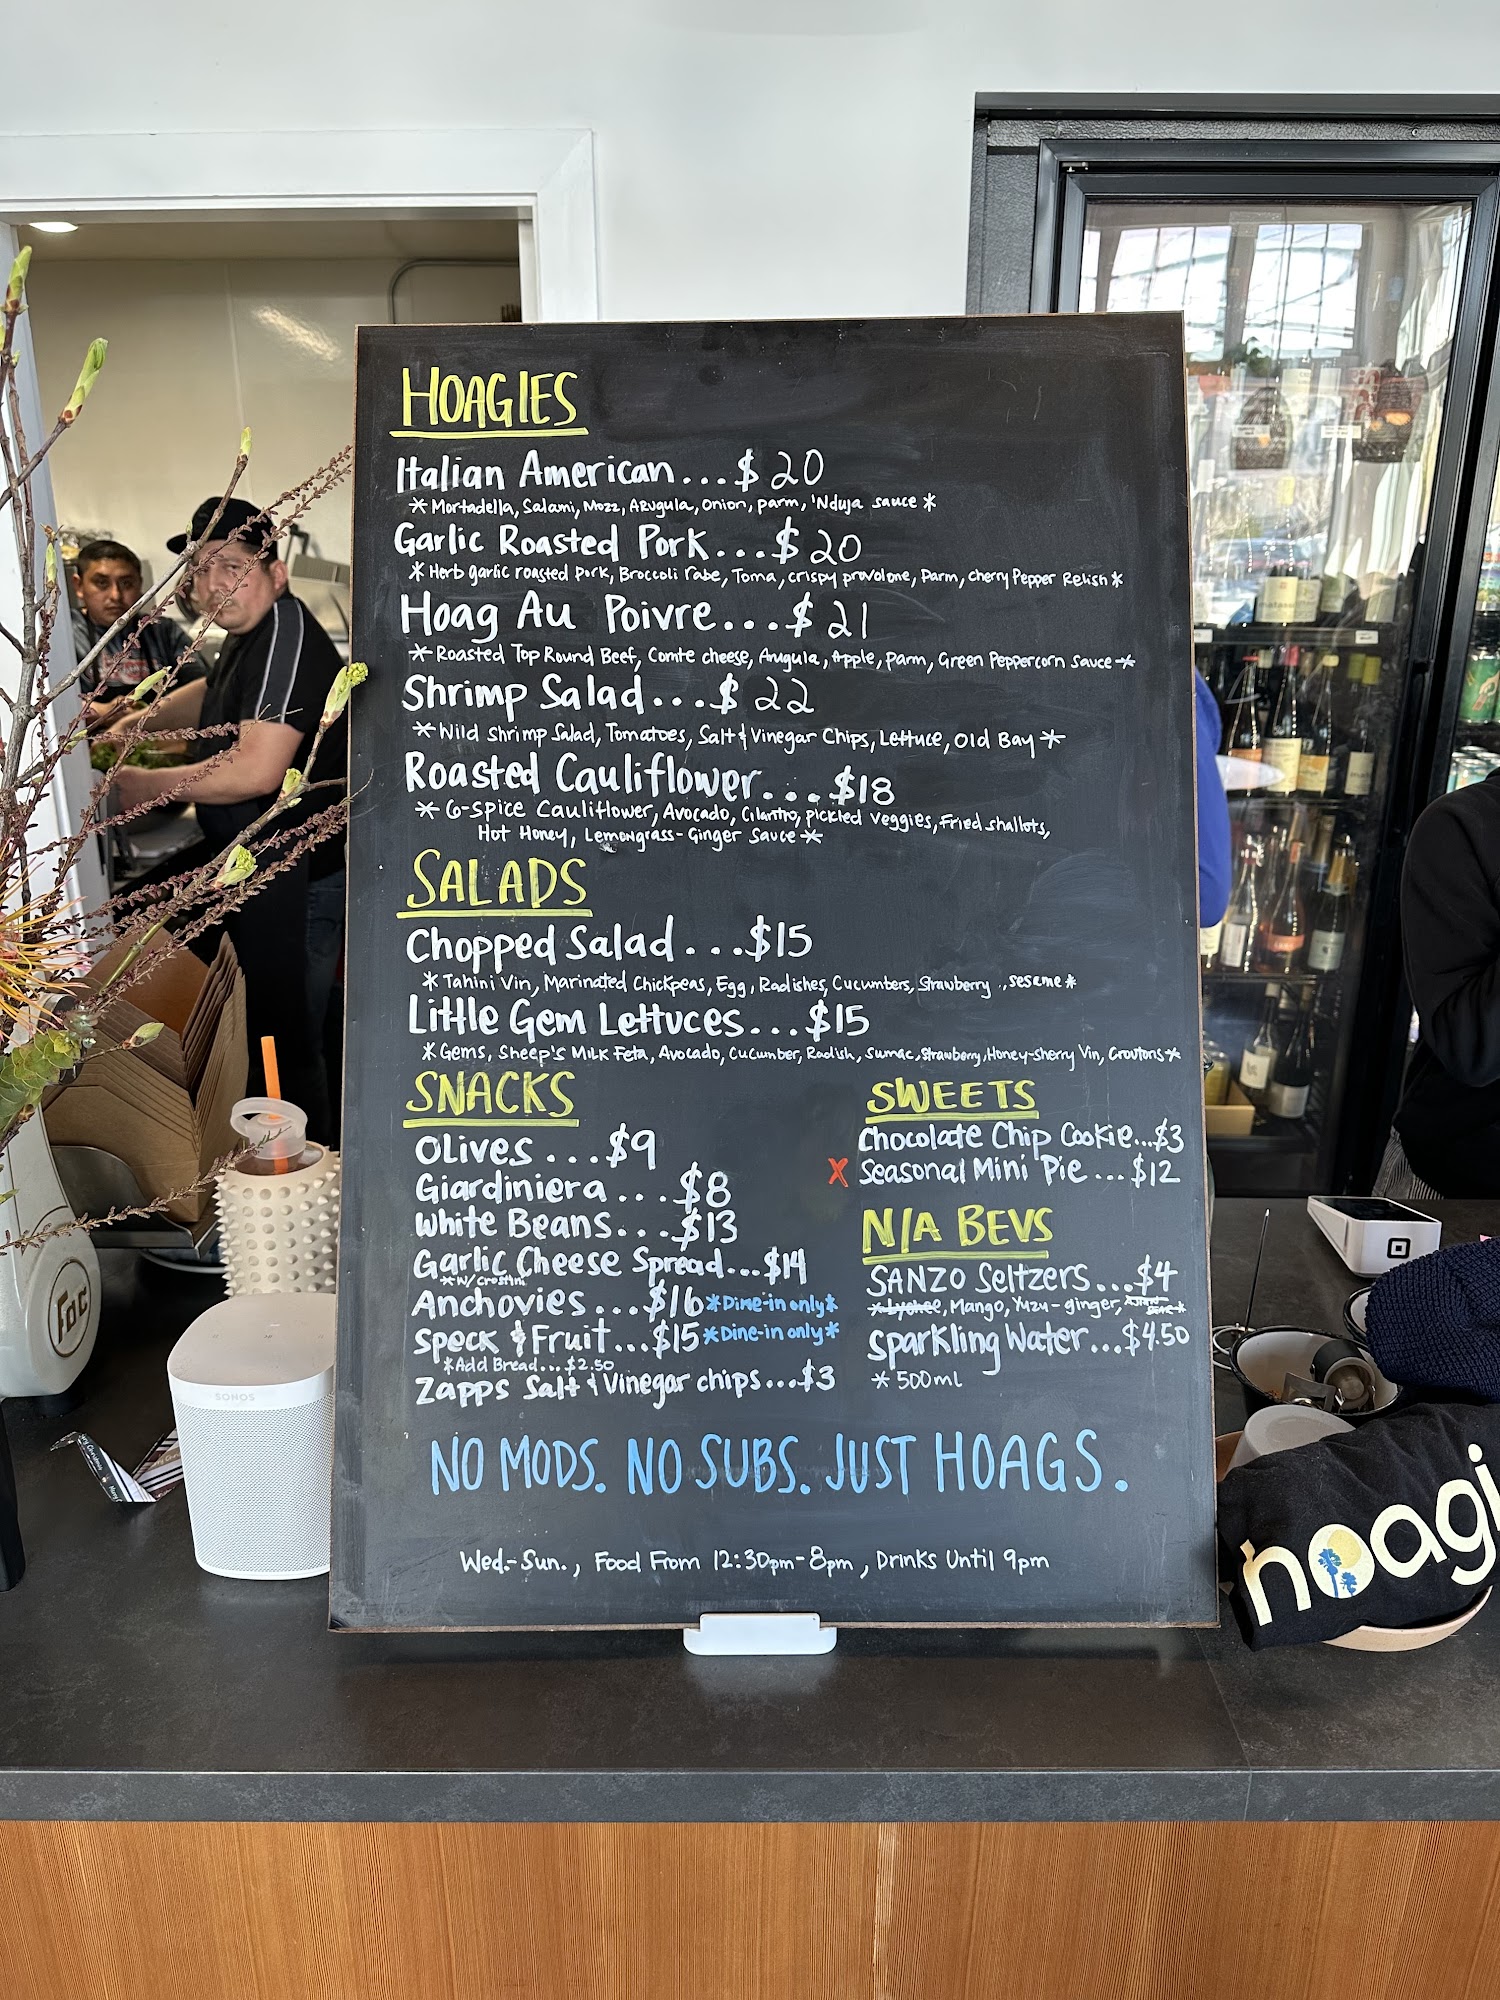 HOAGIES
Italian American...$20
*Mortadella, Salami, Mozz, Arugula, Onion, parm, 'Nduja sauce*
Garlic Roasted Pork...$20
*Herb garlic roasted pork, Broccoli rabe, Toma, crispy provolone, Parm, cherry Pepper Relish*
Hoag Au Poivre...$21
*Roasted Top Round Beef, Comte cheese, Arugula, Apple, parm, Green Peppercorn sauce*
Shrimp Salad...$22
*Wild Shrimp Salad, Tomatoes, Salt & Vinegar Chips, Lettuce, Old Bay*
Roasted Cauliflower...$18
*6-Spice Cauliflower, Avocado, Cilantro, pickled veggies, Fried shallots,
Hot Honey, Lemongrass-Ginger Sauce*
SALADS
Chopped Salad...$15
*Tahini Vin, Marinated Chickpeas, Egg, Radishes, Cucumbers, Strawberry, sesame*
Little Gem Lettuces...$15
*Gems, Sheep's Milk Feta, Avocado, Cucumber, Radish, Sumac, Strawberry, Honey-sherry Vin, Croutons*
SNACKS
Olives...$9
Giardiniera...$8
White Beans...$13
Garlic Cheese Spread...$14
*w/ crostini
Anchovies...$16 *Dine-in only*
Speck & Fruit...$15 *Dine-in only*
*Add Bread...$2.50
Zapps Salt & Vinegar chips...$3
SWEETS
Chocolate Chip Cookie...$3
X Seasonal Mini Pie...$12
N/A BEVS
SANZO Seltzers...$4
*Lychee, Mango, Yuzu-ginger,
Sparkling Water...$4.50
*500ml
NO MODS. NO SUBS. JUST HOAGS.
Wed.-Sun., Food From 12:30pm-8pm, Drinks Until 9pm
SONOS
noagi